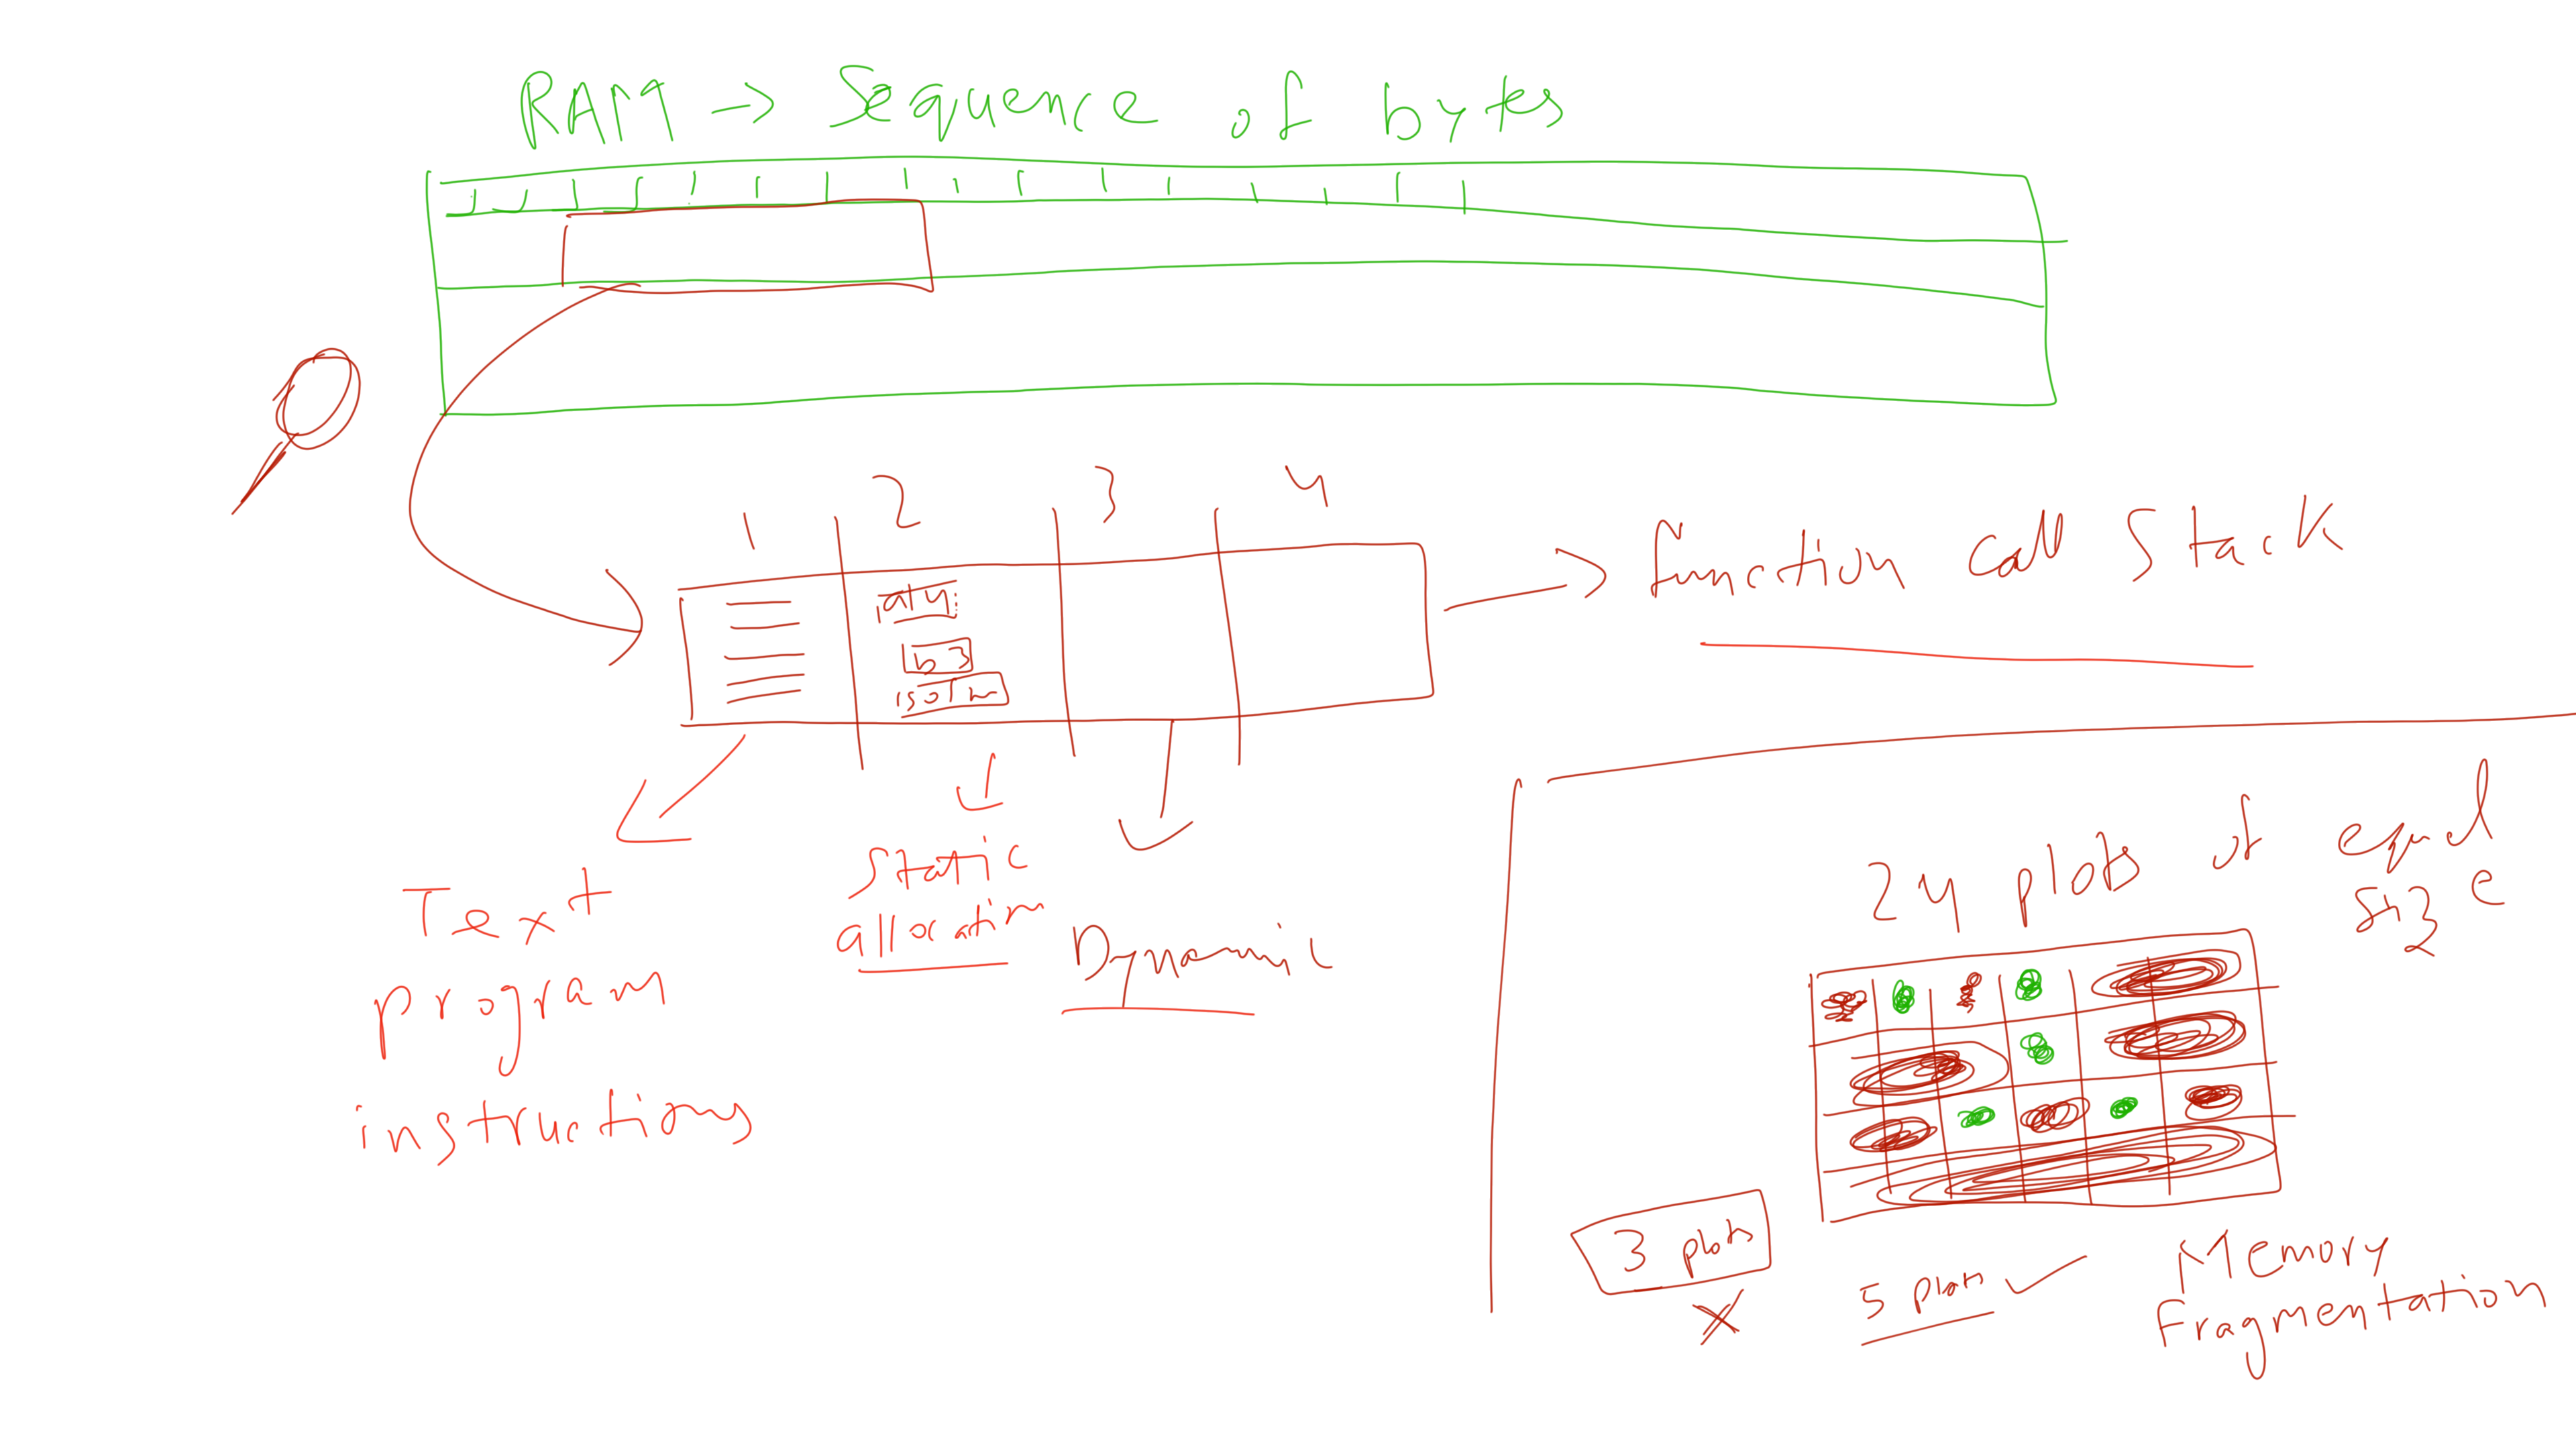 RAM → Sequence of bytes
1 2 3 4
a 4
b 3
→ function call Stack
Text
program
instructions
Static
allocation
Dynamic
24 plots of equal
size
3 plots
X
5 plots ✓
Memory
fragmentation